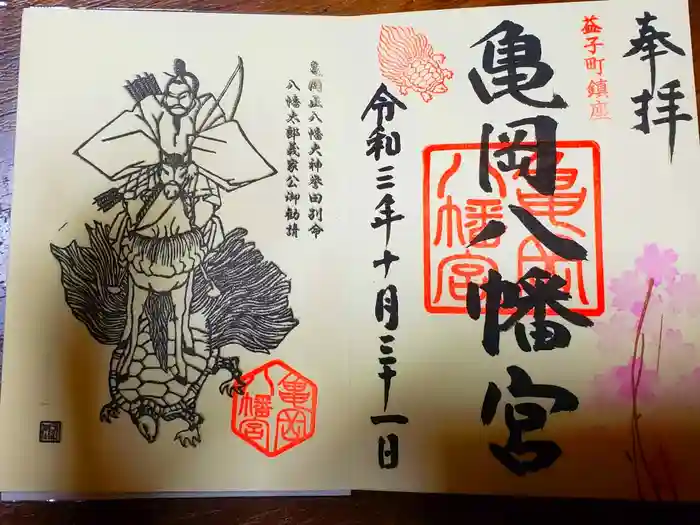 奉拝
益子町鎮座
亀岡八幡宮
亀岡八幡宮
令和三年十月三十一日
亀岡正八幡大神誉田別命
八幡太郎義家公御勧請
亀岡八幡宮